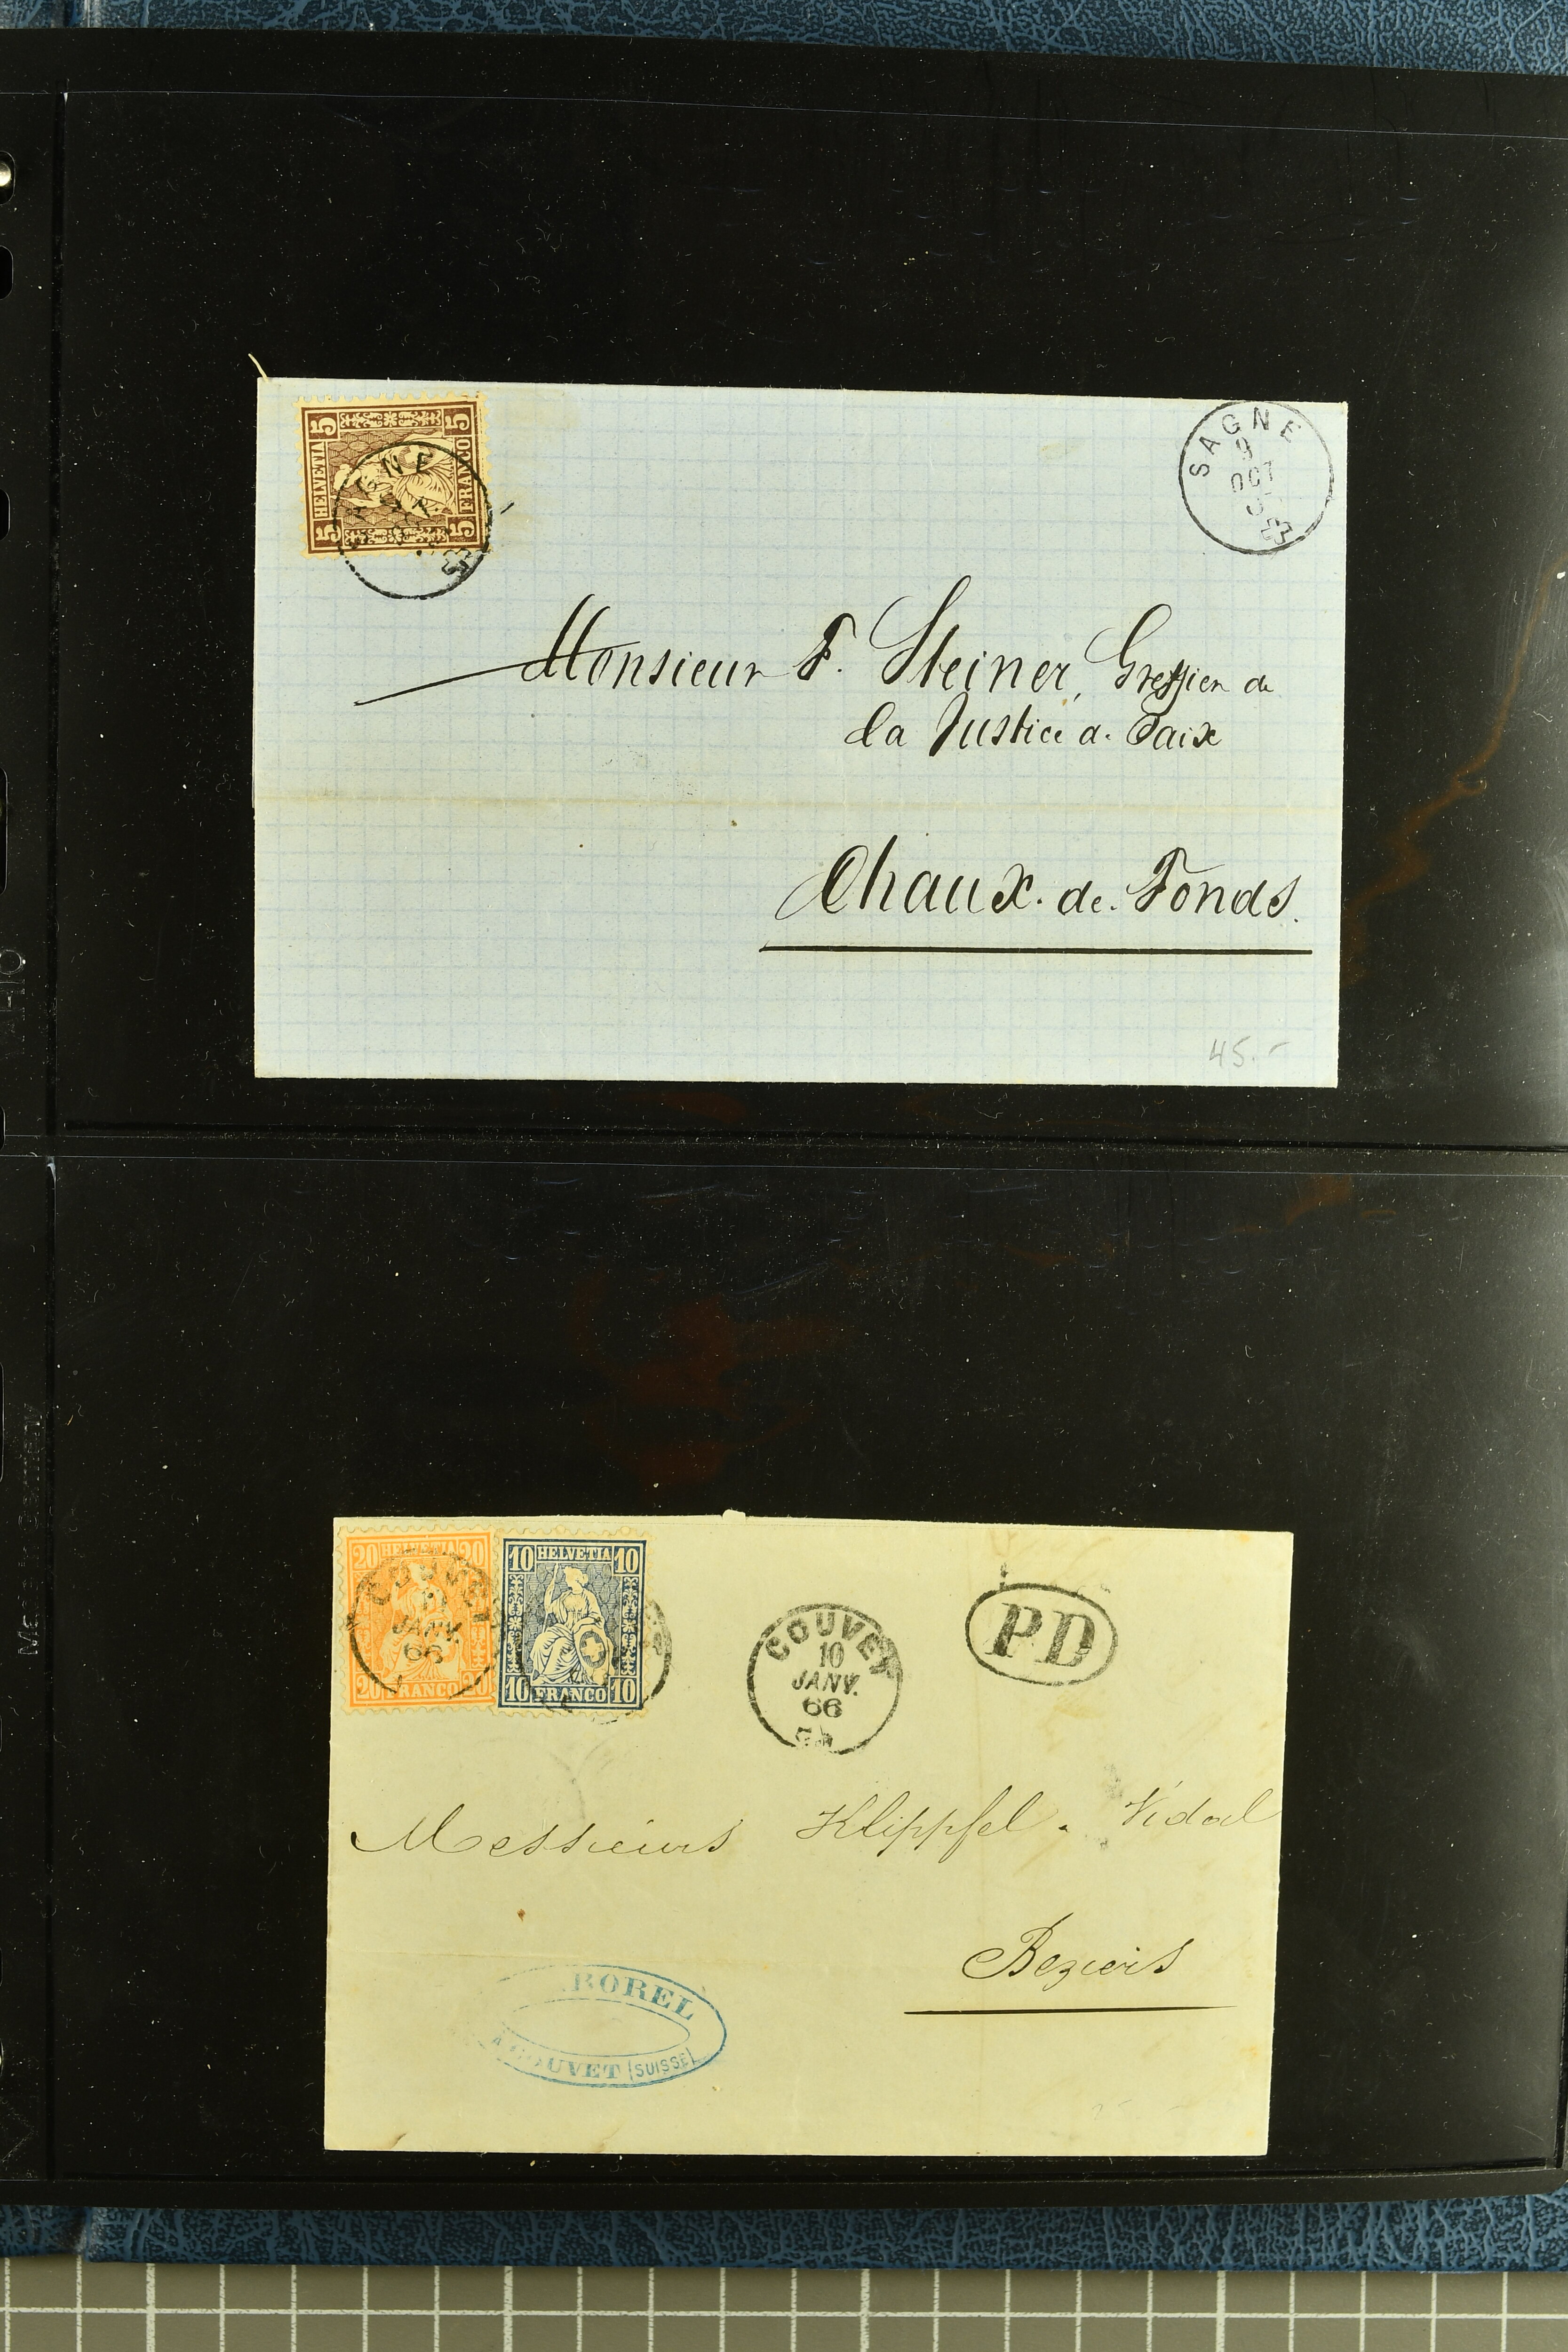 5 HELVETIA 5
5 FRANCO 5
SAGNE
9
OCT
Monsieur F. Steiner, Greffier de
la Justice d. Paix
Chaux. de. Fonds.
45.-
20 HELVETIA 20
20 FRANCO 20
COUVET
JANV.
66
10 HELVETIA 10
10 FRANCO 10
COUVET
10
JANV.
66
PD
Messieurs Klippfel. Vidal
Beziers
BOREL
COUVET (SUISSE)